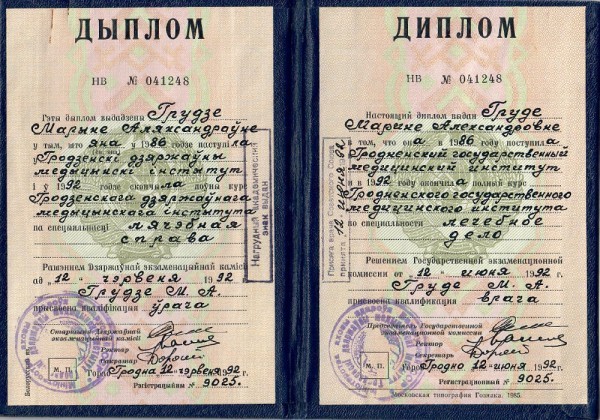 ДЫПЛОМ
НВ № 041248
Гэты дыплом выдадзены Грудзе
Марыне Аляксандраўне
у тым, што яна у 1986 годзе паступіла
Гродзенскі дзяржаўны
медыцынскі інстытут
і ў 1992 годзе скончыла поўны курс
Гродзенскага дзяржаўнага
медыцынскага інстытута
па спецыяльнасці лячэбная
справа
Рашэннем Дзяржаўнай экзаменацыйнай камісіі
ад "12" чэрвеня 1992 г.
Грудзе М. А.
прысвоена кваліфікацыя ўрача
Старшыня Дзяржаўнай
экзаменацыйнай камісіі
Рэктар
Сакратар
М. П.
Горад Гродна 12 чэрвеня 1992 г.
Рэгістрацыйны № 9025.
Нагрудный академический
знак выдан
ДИПЛОМ
НВ № 041248
Настоящий диплом выдан Груде
Марине Александровне
в том, что она в 1986 году поступила
Гродненский государственный
медицинский институт
и в 1992 году окончила полный курс
Гродненского государственного
медицинского института
по специальности лечебное
дело
Решением Государственной экзаменационной
комиссии от "12" июня 1992 г.
Груде М. А.
присвоена квалификация врача
Председатель Государственной
экзаменационной комиссии
Ректор
Секретарь
М. П.
Город Гродно 12 июня 1992 г.
Регистрационный № 9025.
Московская типография Гознака. 1985.
Присяга врача Советского Союза
принята 12 июня 92